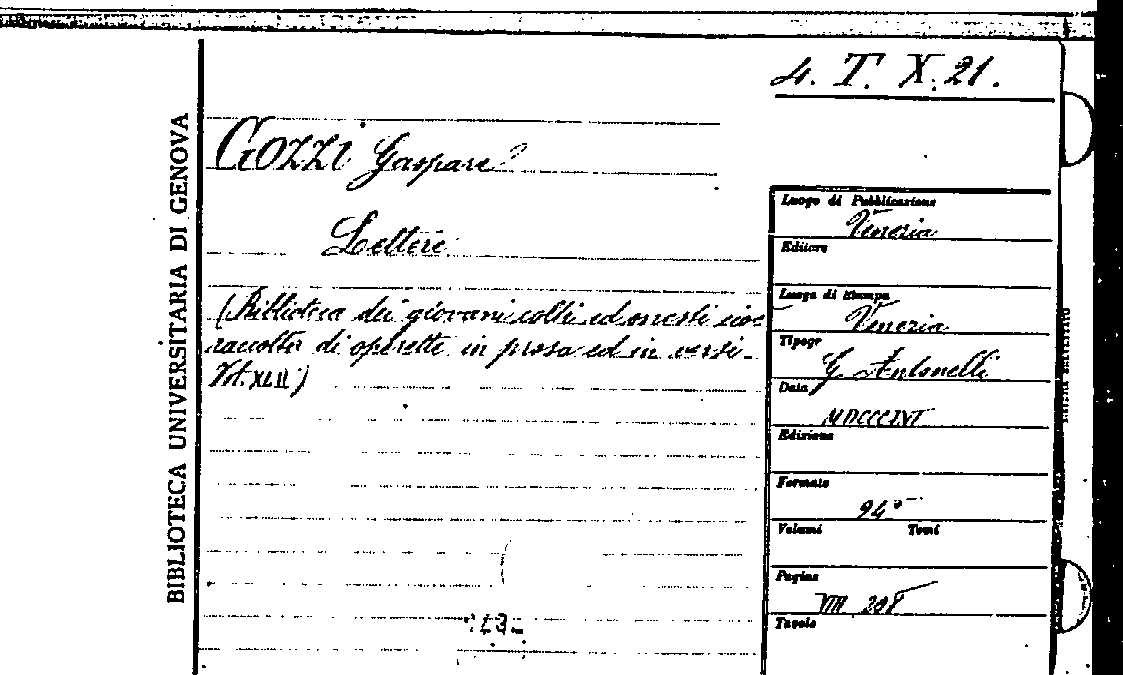 4. T. X. 21.
BIBLIOTECA UNIVERSITARIA DI GENOVA
GOZZI Gaspare
Lettere
(Biblioteca dei giovani colti ed onesti cioè
raccolta di operette in prosa ed in versi.
Vol. XLII)
Luogo di Pubblicazione
Venezia
Editore
Luogo di Stampa
Venezia
Tipogr
G Antonelli
Data
MDCCCLVI
Edizione
Formato
24°
Volumi Tomi
Pagine
VIII 208
Tavole